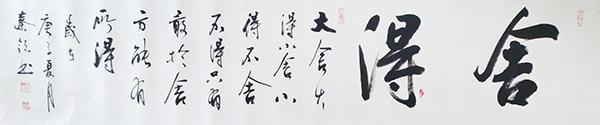 舍得
大舍大
得小舍小
得不舍
不得只有
敢於舍
方能有
所得
歲在
庚子夏月
秦书